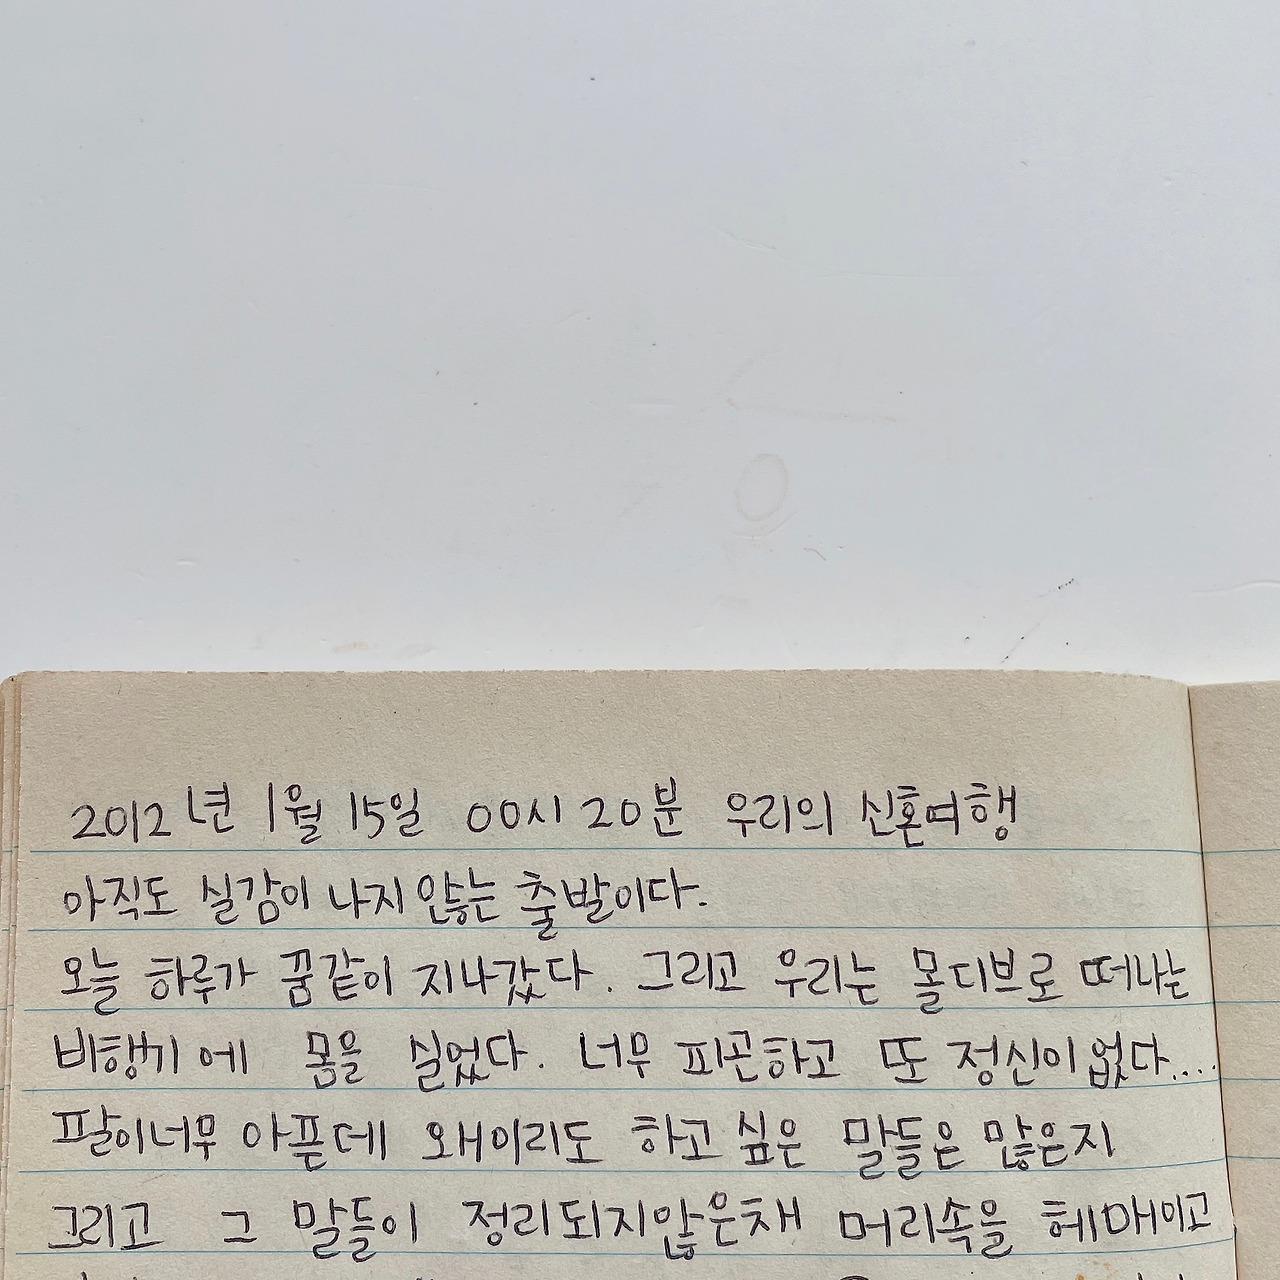 2012년 1월 15일 00시 20분 우리의 신혼여행
아직도 실감이 나지 않는 출발이다.
오늘 하루가 꿈같이 지나갔다. 그리고 우리는 몰디브로 떠나는
비행기에 몸을 실었다. 너무 피곤하고 또 정신이 없다....
팔이너무 아픈데 왜이리도 하고 싶은 말들은 많은지
그리고 그 말들이 정리되지않은채 머리속을 헤매이고